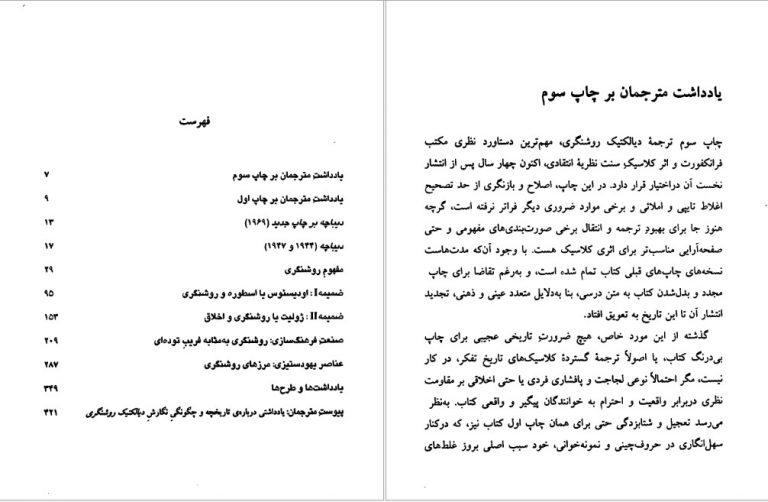 فهرست
یادداشت مترجمان بر چاپ سوم ۷
یادداشت مترجمان بر چاپ اول ۹
دیباچه بر چاپ جدید (۱۹۶۹) ۱۳
دیباچه (۱۹۴۴ و ۱۹۴۷) ۱۷
مفهوم روشنگری ۲۹
ضمیمه I: اودیسئوس یا اسطوره و روشنگری ۹۵
ضمیمه II: ژولیت یا روشنگری و اخلاق ۱۵۳
صنعت فرهنگ‌سازی: روشنگری به‌مثابه فریبِ توده‌ای ۲۰۹
عناصر یهودستیزی: مرزهای روشنگری ۲۸۷
یادداشت‌ها و طرح‌ها ۳۴۹
پیوستِ مترجمان: یادداشتی درباره‌ی تاریخچه و چگونگیِ نگارشِ دیالکتیک روشنگری ۴۲۱
یادداشت مترجمان بر چاپ سوم
چاپ سوم ترجمهٔ دیالکتیک روشنگری، مهم‌ترین دستاورد نظری مکتب
فرانکفورت و اثر کلاسیکِ سنت نظریهٔ انتقادی، اکنون چهار سال پس از انتشار
نخست آن دراختیار قرار دارد. در این چاپ، اصلاح و بازنگری از حد تصحیح
اغلاط تایپی و املائی و برخی موارد ضروری دیگر فراتر نرفته است، گرچه
هنوز جا برای بهبودِ ترجمه و انتقال برخی صورت‌بندی‌های مفهومی و حتی
صفحه‌آرایی مناسب‌تر برای اثری کلاسیک هست. با وجود آن‌که مدت‌هاست
نسخه‌های چاپ‌های قبلی کتاب تمام شده است، و به‌رغم تقاضا برای چاپ
مجدد و بدل‌شدن کتاب به متن درسی، بنا به‌دلایل متعدد عینی و ذهنی، تجدید
انتشار آن تا این تاریخ به تعویق افتاد.
گذشته از این مورد خاص، هیچ ضرورتِ تاریخی عجیبی برای چاپ
بی‌درنگ کتاب، یا اصولاً ترجمهٔ گستردهٔ کلاسیک‌های تاریخ تفکر، در کار
نیست، مگر احتمالاً نوعی لجاجت و پافشاری فردی یا حتی اخلاقی بر مقاومت
نظری دربرابر واقعیت و احترام به خوانندگان پیگیر و واقعی کتاب. به‌نظر
می‌رسد تعجیل و شتابزدگی حتی برای همان چاپ اول کتاب نیز، که درکنار
سهل‌انگاری در حروف‌چینی و نمونه‌خوانی، خود سبب اصلی بروز غلط‌های